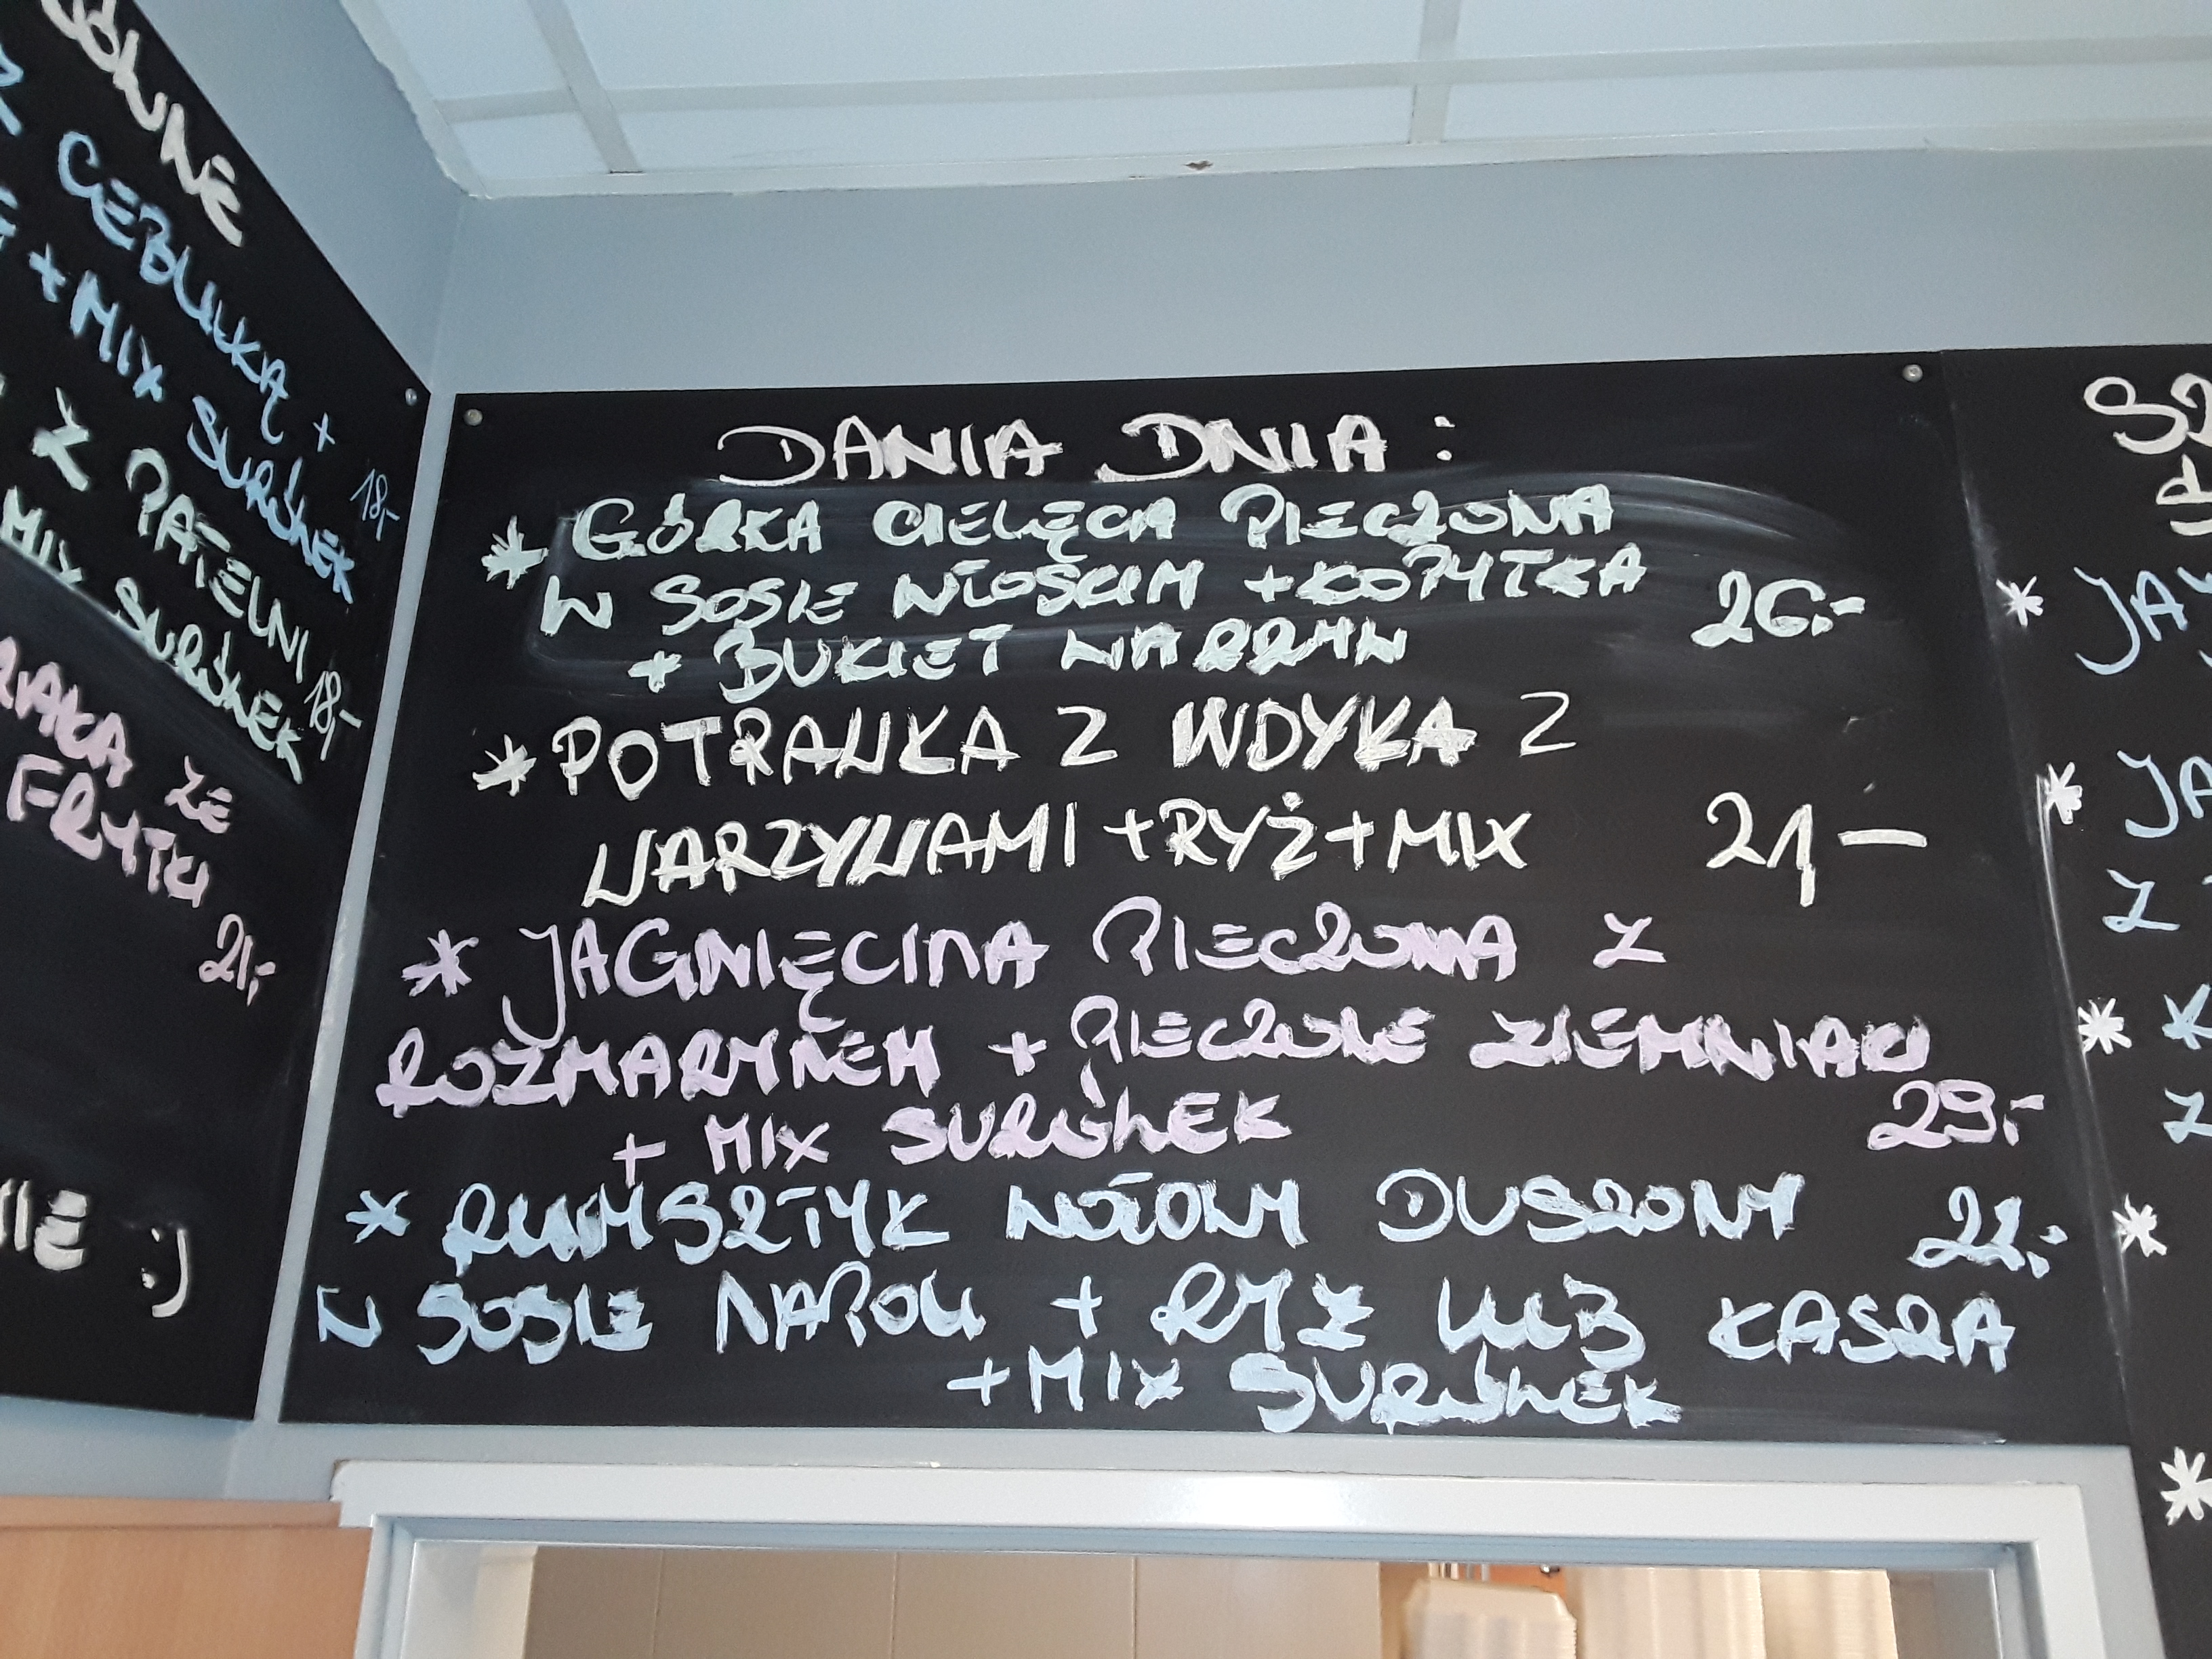 CEBULKĄ +
+ MIX SURÓWEK 18,-
Z PATELNI
MIX SURÓWEK 18,-
ZE
FRYTKI
21,-
:)
DANIA DNIA :
* GÓRKA CIELĘCA PIECZONA
W SOSIE WŁOSKIM + KOPYTKA 26.-
+ BUKIET WARZYW
* POTRAWKA Z INDYKA Z
WARZYWAMI + RYŻ + MIX 21 -
* JAGNIĘCINA PIECZONA Z
ROZMARYNEM + PIECZONE ZIEMNIAKI
+ MIX SURÓWEK 29.-
* RUMSZTYK WOŁOWY DUSZONY 22.-
W SOSIE NAPOLI + RYŻ LUB KASZA
+ MIX SURÓWEK